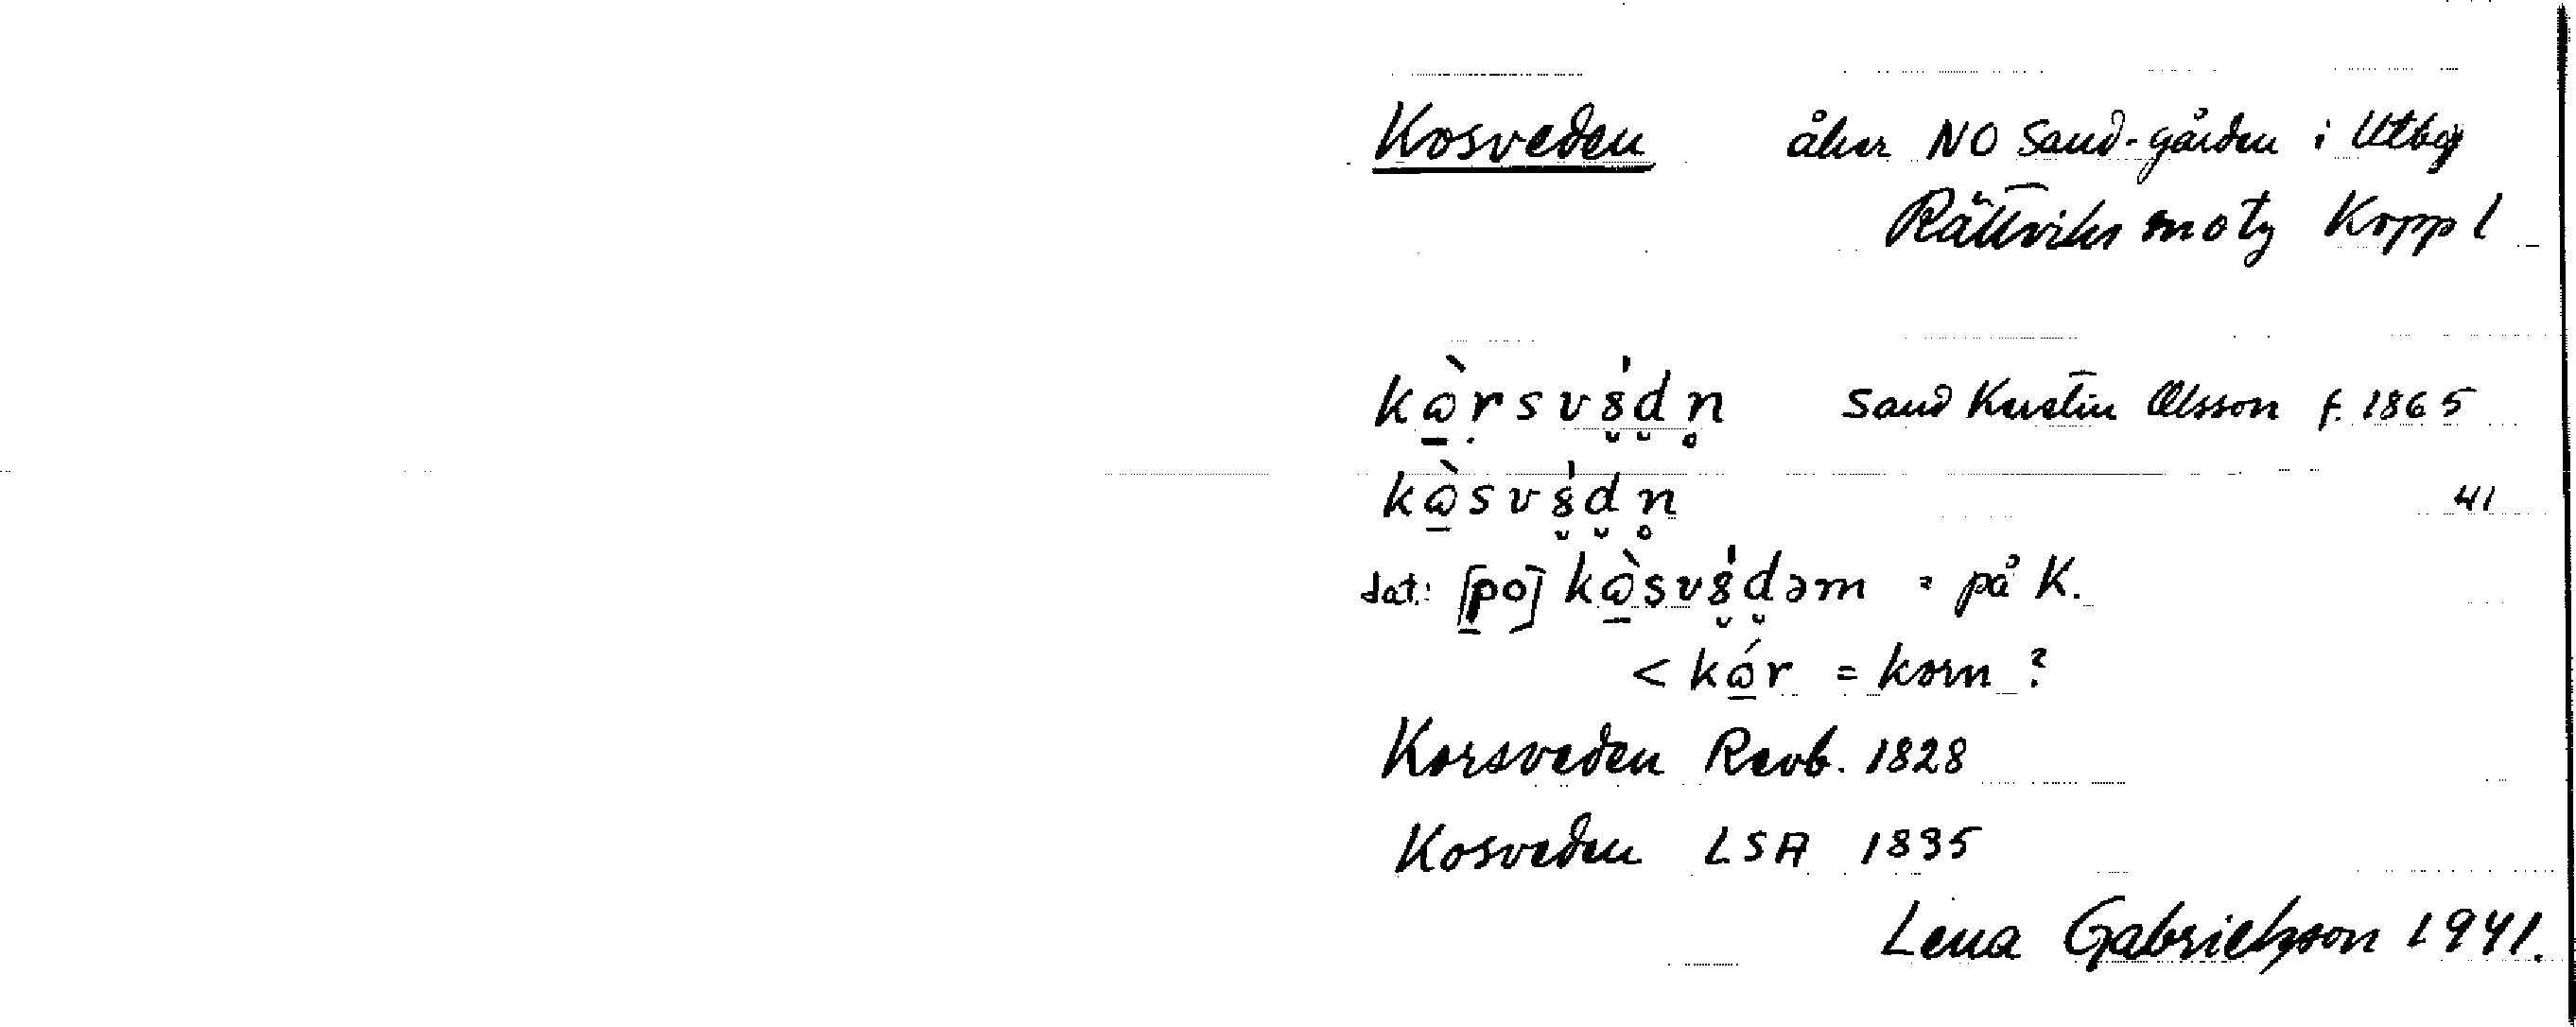 Kosveden åker NO Sand-gården i Utby
Rättviks snotg Kopp l
kὼrsvś̯d̯n̥ Sand Kerstin Olsson f. 1865
kὼsvś̯d̯n̥ 41
dat: [po] kὼsvś̯d̯əm = på K.
< kώr = korn ?
Korsveden Revb. 1828
Kosveden LSA 1835
Lena Gabrielsson 1941.